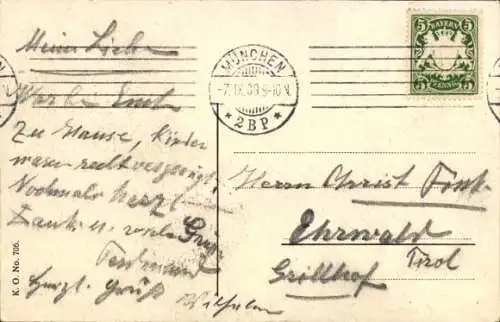 Meine Lieben
War bei Euch
Zu Hause, Kinder
waren recht vergnügt,
Nochmals herzl.
Dank u. viele Grüße
Ferdinand
Herzl. Grüße
Wilhelm
K. O. No. 706.
MÜNCHEN
-7.IX. 9-10 V.
* 2BP *
5 BAYERN 5
PFENNIG
Herrn Christ
Ehrwald
Tirol
Grillhof